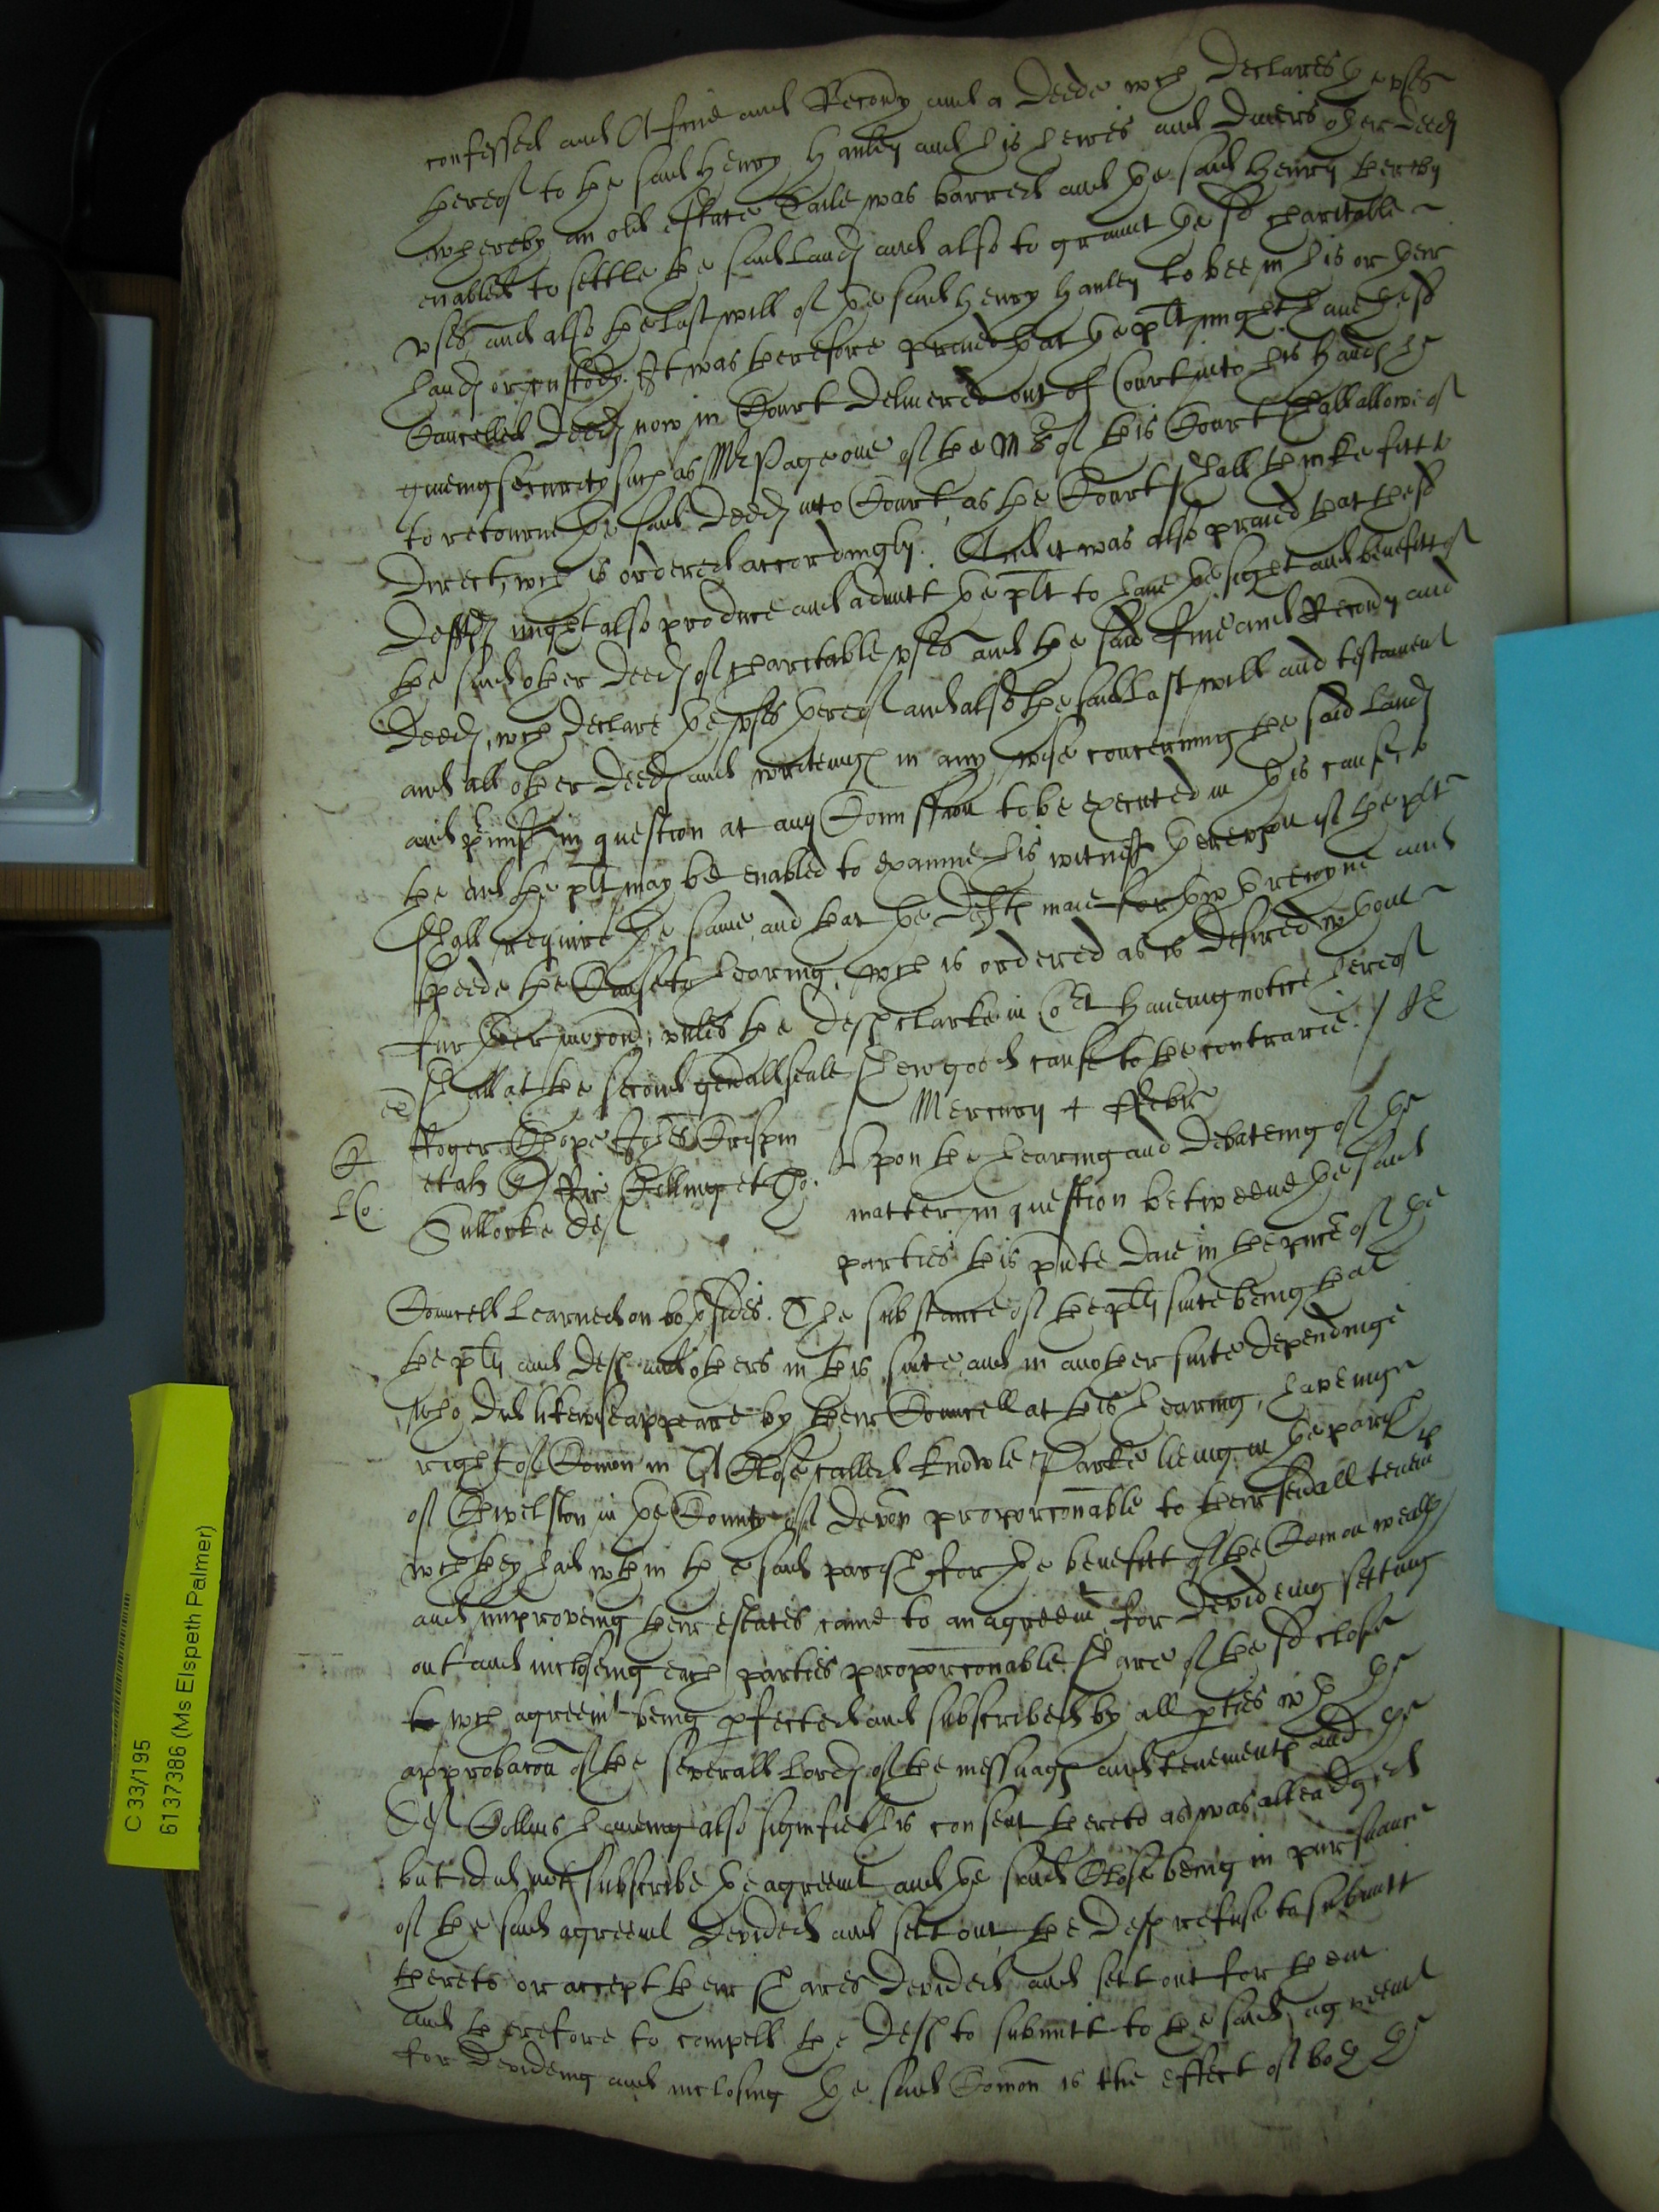 confessed and A fine and Recovy and a Deede wch declares the uses
thereof to the said Henry Hanley and his heires and divers other deeds
whereby an old estate Taile was barred and the said Henry thereby
enabled to settle the said Lands and also to graunt the sd charitable
uses and also the last will of the said Henry Hanley to bee in his or their
hands or custody. It was therefore praied that the plt might have the sd
Cancelled Deeds now in Court delivered out of Court into his hands he
giveing security such as Mr Page one of the Mrs of this Court shall allowe of
to retourne the said Deeds into Court as the Court shall thinke fitt to
direct, wch is ordered accordingly. And it was also praied that the sd
Defts might also produce and admitt the plt to have the sight and benefitt of
the said other Deeds of charitable uses and the said Fine and Recovy and
Deeds, wch declare the uses thereof and also the said last will and testament
and all other deeds and writeings in any wise concerning the said Lands
and pmiss in question at any Comission to be executed in this cause to
the end the plt may be enabled to examine his witness thereupon if the plt
shall require the same, and that the Defts maie forthwth rejoyne and
speede the Cause to hearing, wch is ordered as is desired wthout
further mocond; unles the defts clarke in Cort haveing notice hereof
shall at the second genall seale shew good cause to the contrarie. /
Mercury 4 Febr
Roger Shope Johes Crispin
et als Quer Collins et Tho:
Sullocke def
Upon the hearing and Debateing of the
matter in question betweene the said
parties this pnte daie in the pnce of the
Councell Learned on both sides. The substance of the plts suite being that
the plts and defts and others in this suite and in another suite dependinge
who did likewise appeare by their Councell at this hearing, haveinge
right of Comon in A Close called Knowle Parke lieing in the parish
of in the County of Devon proporconable to their sevall tenemts
wch they had wthin the said parish, for the benefitt of the Comon wealth
and improveing their estates came to an agreemt for devideing setting
out and incloseing each parties proporconable share of the sd close
to wch agreemt being pfected and subscribed by all pties wth the
approbacon of the severall Lords of the messuags and tenements and the
def Collins haveing also signified his consent thereto as was alleadged
but did not subscribe the agreemt and the said Close being in pursuance
of the said agreemt devided and sett out, the defts refuse to submitt
thereto or accept their shares devided and sett out for them
and therefore to compell the defts to submitt to the said agreemt
for devideing and inclosing the said Comon is the effect of both the
C 33/195
6137386 (Ms Elspeth Palmer)